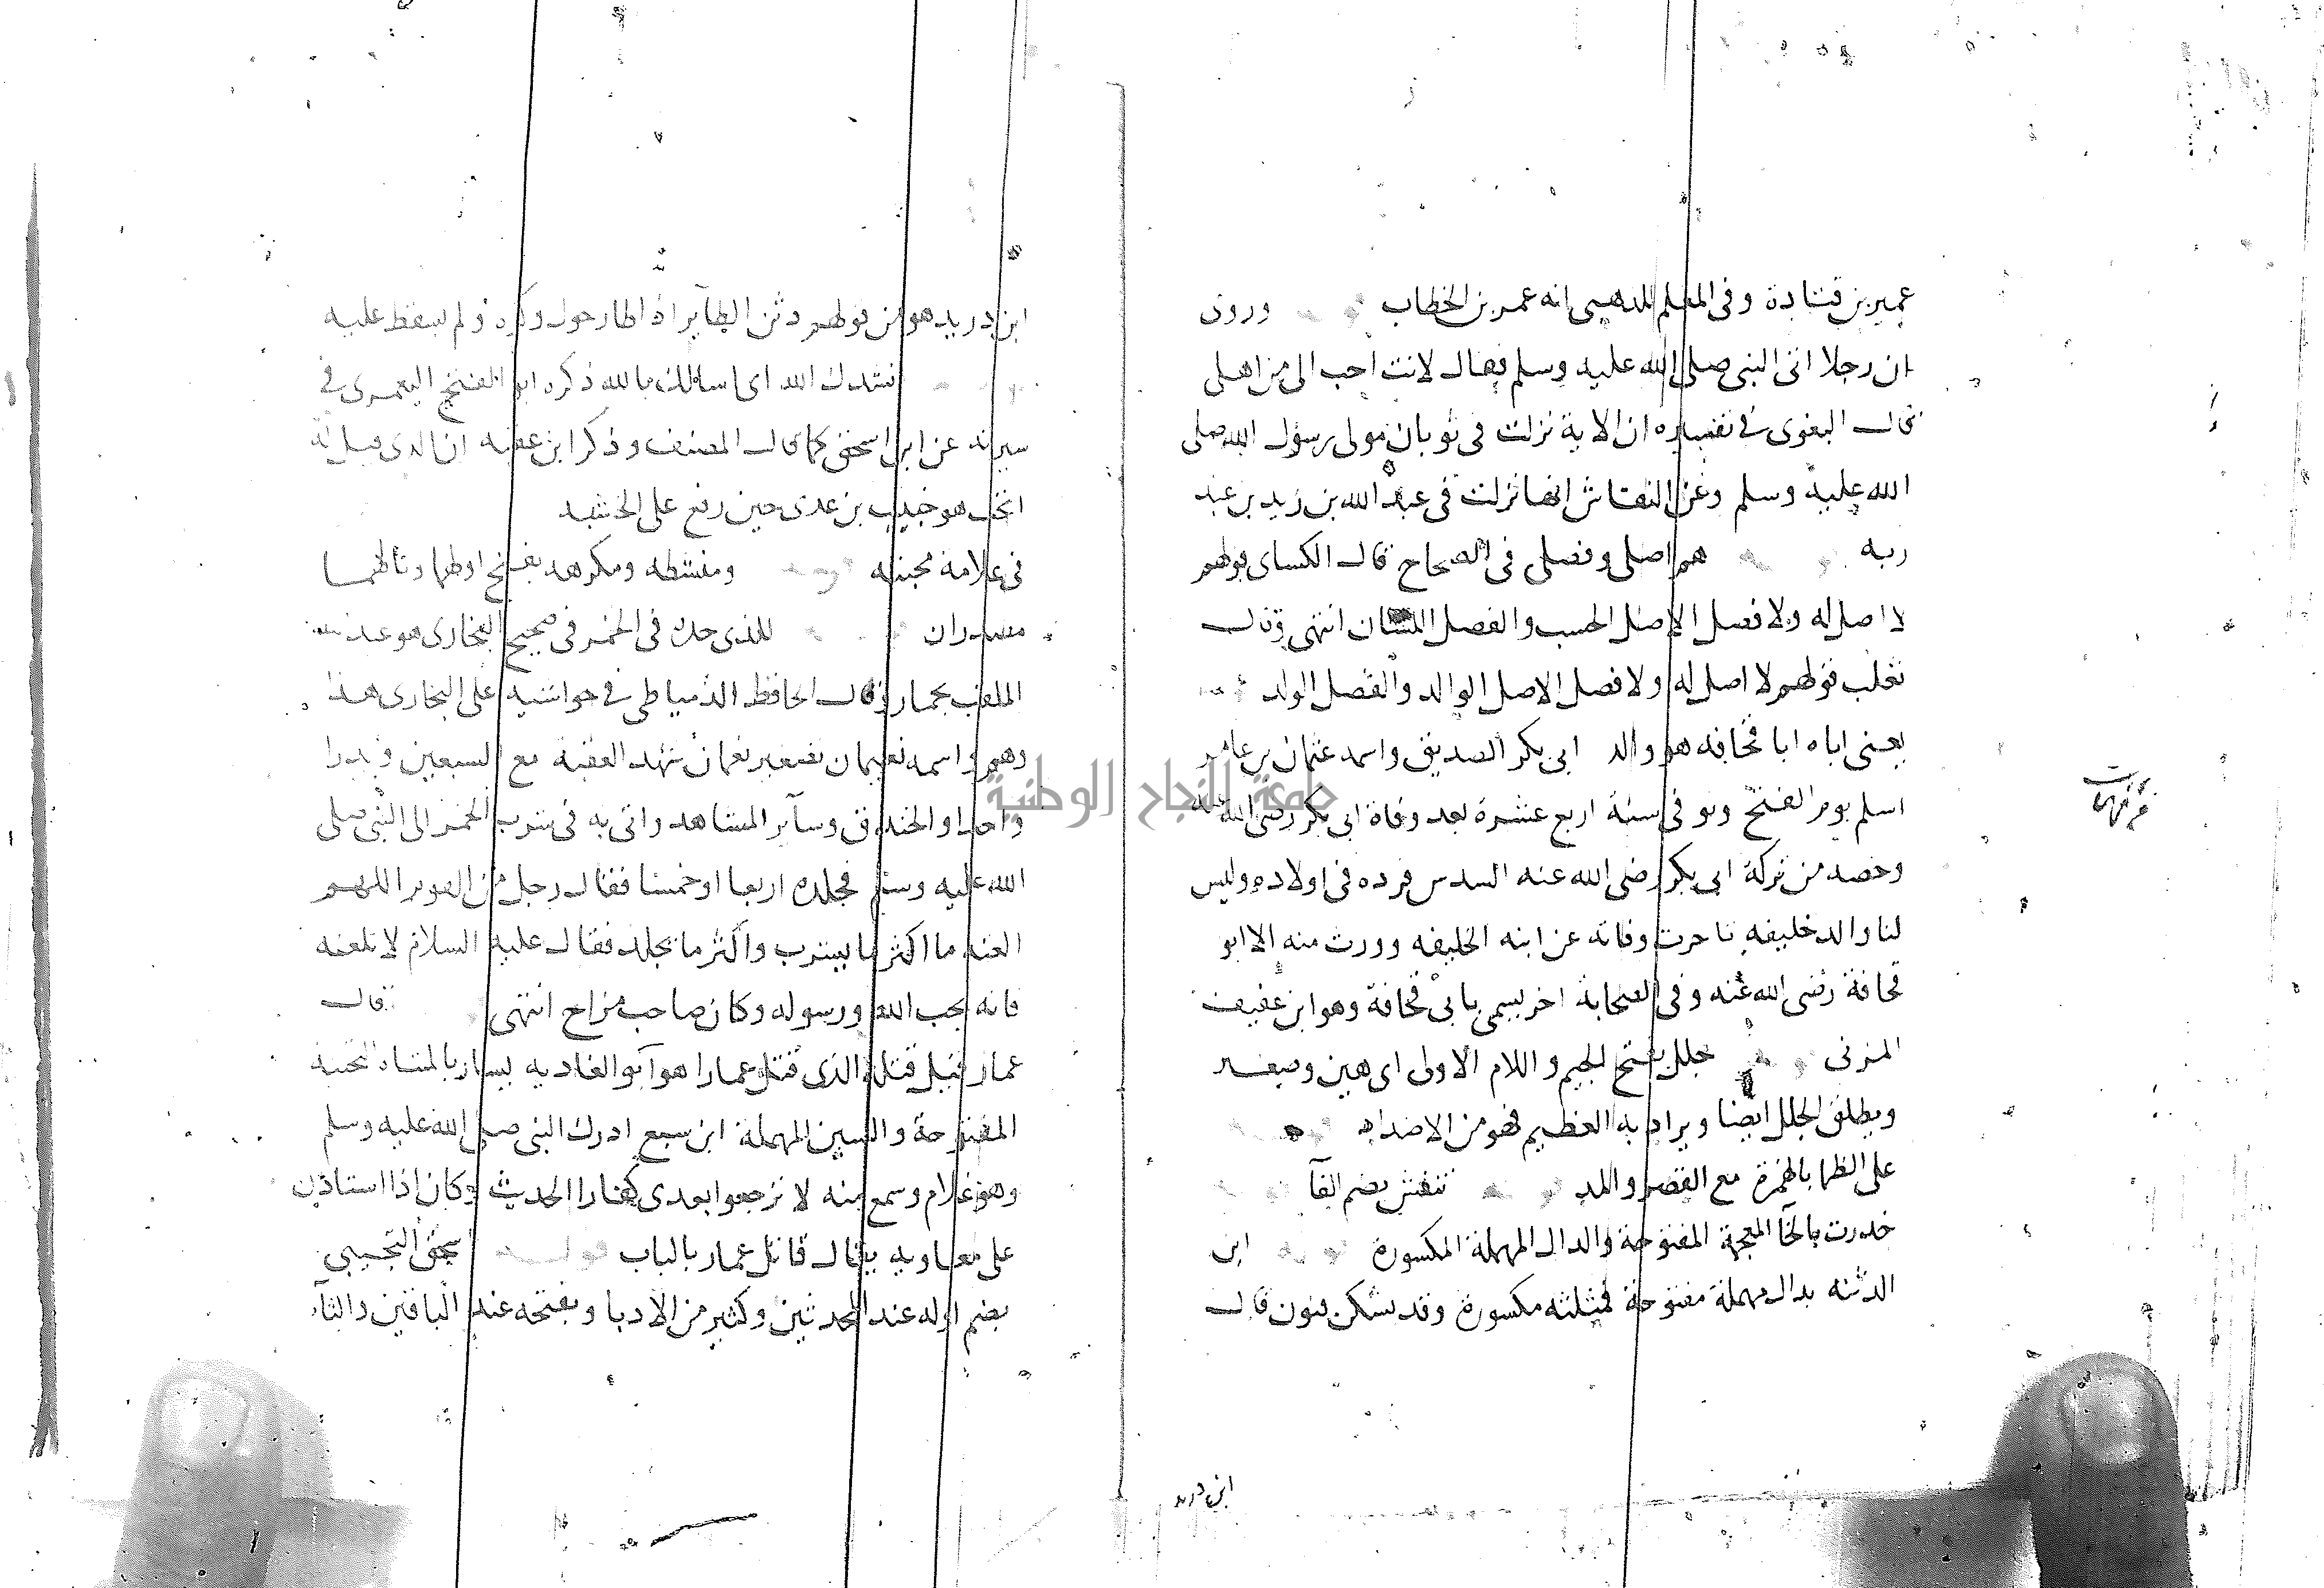 عمير بن قتادة وفى المعلم للدهبى انه عمر بن الخطاب وروى
ان رجلا اتى النبى صلى الله عليه وسلم فقال لانت احب الى من اهلى
قال البغوى فى تفسيره ان الاية نزلت فى ثوبان مولى رسول الله صلى
الله عليه وسلم وعن النقاش انها نزلت فى عبد الله بن زيد بن عبد
ربه هم اصلى وفصلى فى الصحاح قال الكساى قولهم
لا اصل له ولا فصل الاصل الحسب والفصل اللسان انتهى وقال
ثعلب قولهم لا اصل له ولا فصل الاصل الوالد والفصل الولد
يعنى اباه ابا قحافه هو والد ابى بكر الصديق واسمه عثمان بن عامر
اسلم يوم الفتح وتوفى سنة اربع عشرة بعد وفاة ابى بكر رضى الله عنه
وحصه من تركة ابى بكر رضى الله عنه السدس فرده فى اولاده وليس
لنا والد خليفه تاخرت وفاته عن ابنه الخليفه وورث منه الا ابو
قحافة رضى الله عنه وفى الصحابة اخر يسمى بابى قحافة وهو ابن عفيف
المزنى جلل بفتح الجيم واللام الاولى اى هين وصغير
ويطلق الجلل ايضا ويراد به العظيم فهو من الاضداد
على الظما بالهمزة مع القصر والمد تنفش بضم الفآ
خدرت بالخآ المعجمة المفتوحة والدال المهملة المكسورة ابن
الدثنه بدال مهملة مفتوحة فمثلثه مكسورة وقد تسكن فنون قال
ابن دريد
ابن دريد هو من قولهم دثن الطآير اذا طار حول وكره ولم يسقط عليه
انشدك الله اى اسالك بالله ذكره ابو الفتح اليعمرى فى
سيرته عن ابن اسحق كما قال المصنف وذكر ابن عقبه ان الذى قيل له
اتحب هو خبيب بن عدى حين رفع على الخشبه
فى علامة محبته ومنشطه ومكرهه بفتح اولهما وثالثهما
مصدران للذى حده فى الخمر فى صحيح البخارى هو عبد الله
الملقب بحمار وقال الحافظ الدمياطى فى حواشيه على البخارى هذا
وهم واسمه نعيمان تصغير نعمان شهد العقبة مع السبعين وبدرا
واحدا والخندق وسآير المشاهد واتى به فى شرب الخمر الى النبى صلى
الله عليه وسلم فجلده اربعا او خمسا فقال رجل من القوم اللهم
العنه ما اكثر ما يشرب واكثر ما يجلد فقال عليه السلام لا تلعنه
فانه يحب الله ورسوله وكان صاحب مزاح انتهى قال
عمار قبل قتله الذى قتل عمارا هو ابو الغاديه يسار بالمثناه التحتية
المفتوحة والسين المهملة ابن سبع ادرك النبى صلى الله عليه وسلم
وهو غلام وسمع منه لا ترجعوا بعدى كفارا الحديث وكان اذا استاذن
على معاويه يقال قاتل عمار بالباب اسحق التجيبى
بضم اوله عند المحدثين وكثير من الادبا وبفتحه عند الباقين والتآء